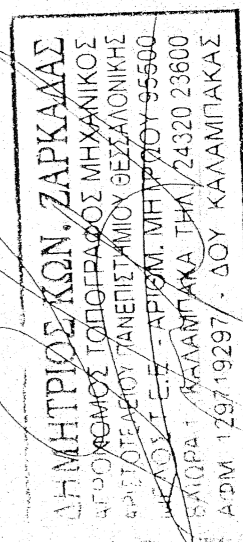 ΔΗΜΗΤΡΙΟΣ ΚΩΝ. ΖΑΡΚΑΔΑΣ
ΑΓΡΟΝΟΜΟΣ ΤΟΠΟΓΡΑΦΟΣ ΜΗΧΑΝΙΚΟΣ
ΑΡΙΣΤΟΤΕΛΕΙΟΥ ΠΑΝΕΠΙΣΤΗΜΙΟΥ ΘΕΣΣΑΛΟΝΙΚΗΣ
ΜΕΛΟΣ Τ.Ε.Ε. - ΑΡΙΘΜ. ΜΗΤΡΩΟΥ 95500
1 ΚΑΛΑΜΠΑΚΑ ΤΗΛ. 24320 23600
ΑΦΜ 129719297 - ΔΟΥ ΚΑΛΑΜΠΑΚΑΣ